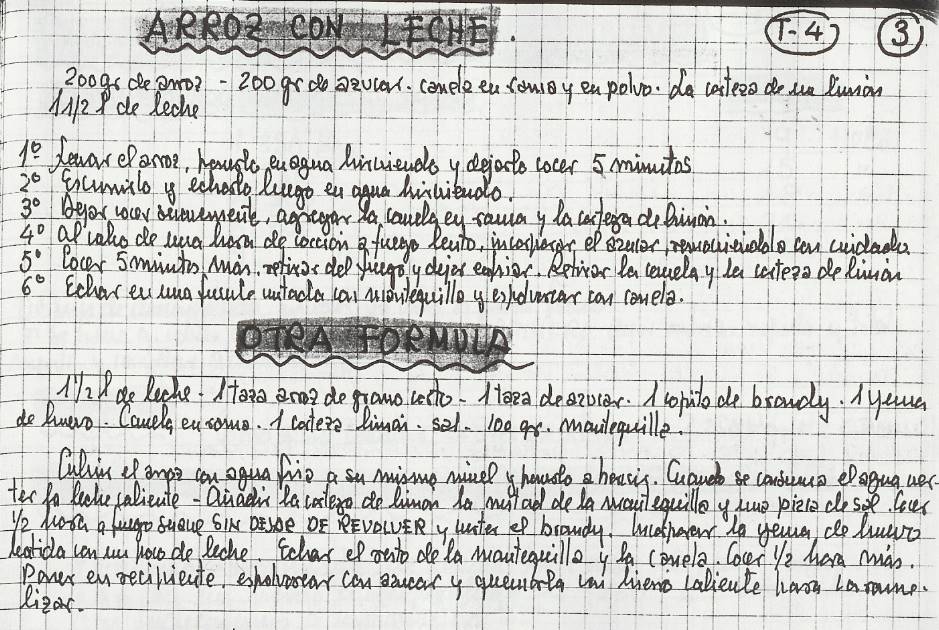 ARROZ CON LECHE. T-4 3
200 gr de arroz - 200 gr de azucar. canela en rama y en polvo. La corteza de un limón
1 1/2 l de leche
1º Lavar el arroz, ponerlo en agua hirviendo y dejarlo cocer 5 minutos
2º Escurrirlo y echarlo luego en agua hirviendo.
3º Dejar cocer suavemente, agregar la canela en rama y la corteza de limón.
4º Al cabo de una hora de cocción a fuego lento, incorporar el azucar, removiendolo con cuidado
5º Cocer 5 minutos más, retirar del fuego y dejar enfriar. Retirar la canela y la corteza de limón
6º Echar en una fuente untada con mantequilla y espolvorear con canela.
OTRA FORMULA
1 1/2 l de leche - 1 taza arroz de grano corto - 1 taza de azucar. 1 copita de brandy. 1 yema
de huevo. Canela en rama. 1 corteza limón. sal. 100 gr. mantequilla.
Cubrir el arroz con agua fria a su mismo nivel y ponerlo a hervir. Cuando se consuma el agua ver-
ter la leche caliente - Añadir la corteza de limon la mitad de la mantequilla y una pizca de sal. Cocer
1/2 hora a fuego suave SIN DEJAR DE REVOLVER y verter el brandy. Incorporar la yema de huevo
batida con un poco de leche. Echar el resto de la mantequilla y la canela. Cocer 1/2 hora más.
Poner en recipiente espolvorear con azucar y quemarla con hierro caliente para carame-
lizar.